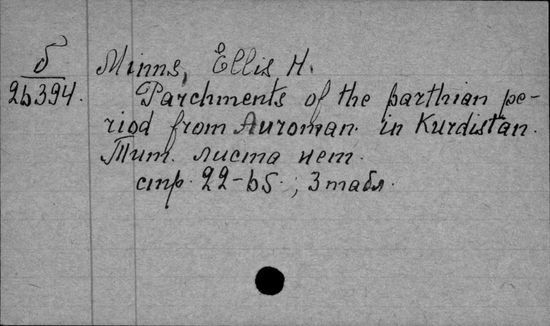 б
26394.
Minns, Ellis H.
Parchments of the parthian pe-
riod from Auroman in Kurdistan.
Тит. листа нет.
стр. 22-65.; 3 табл.